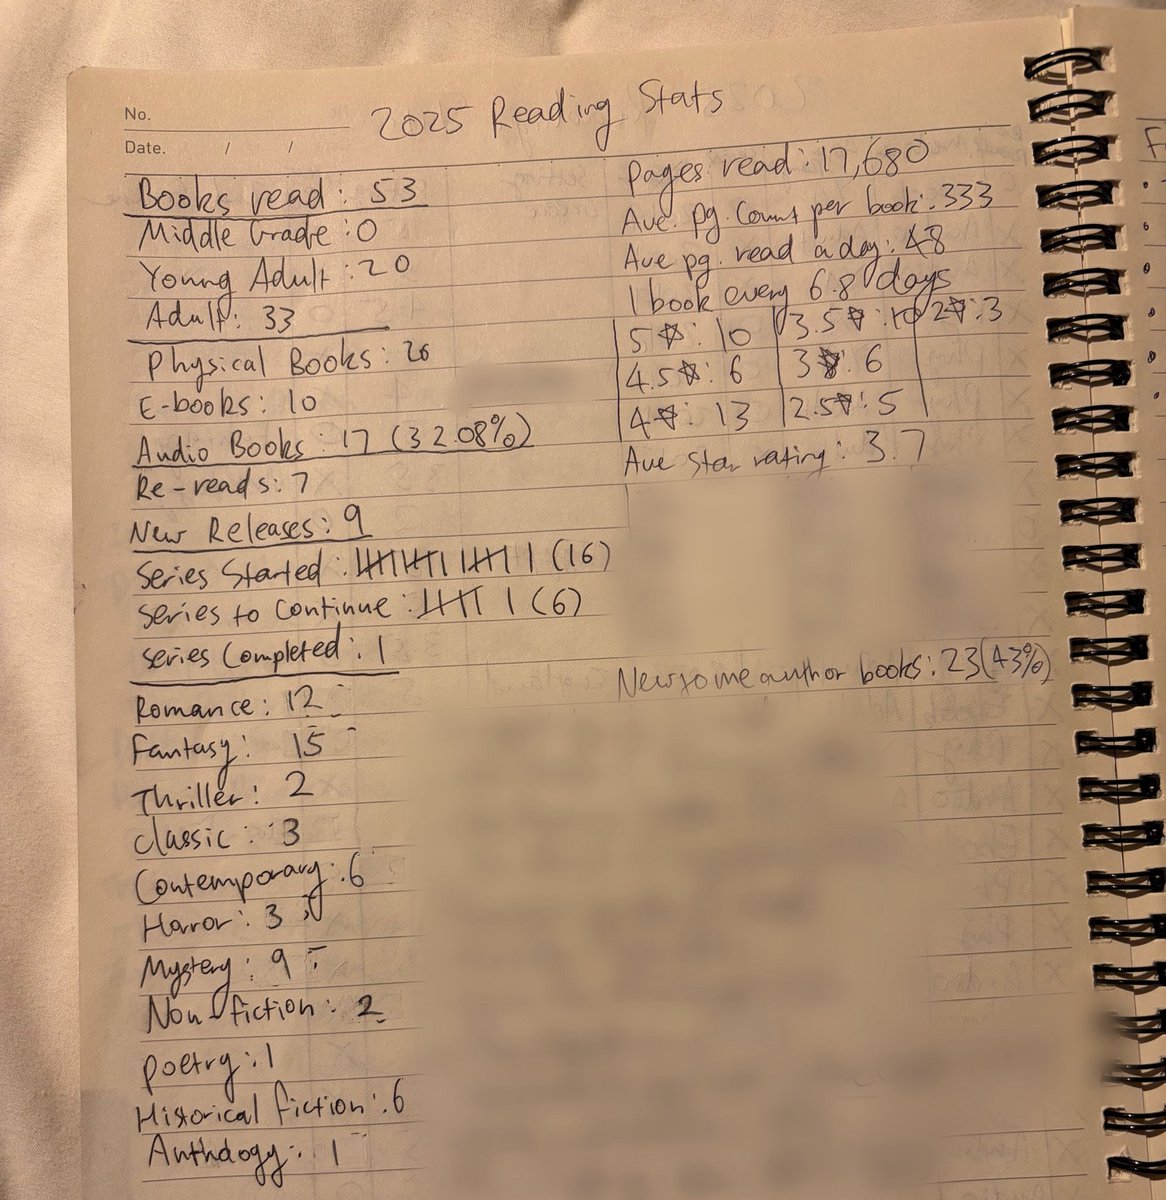 No.
Date. / /
2025 Reading Stats
Books read: 53
Middle Grade: 0
Young Adult: 20
Adult: 33
Physical Books: 26
E-books: 10
Audio Books: 17 (32.08%)
Re-reads: 7
New Releases: 9
Series Started: 𝍸 𝍸 𝍸 | (16)
Series to Continue: 𝍸 | (6)
Series Completed: 1
Romance: 12
Fantasy: 15
Thriller: 2
Classic: 3
Contemporary: 6
Horror: 3
Mystery: 9
Non-fiction: 2
Poetry: 1
Historical fiction: 6
Anthology: 1
Pages read: 17,680
Ave. pg. Count per book: 333
Ave pg. read a day: 48
1 book every 6.8 days
5☆: 10 3.5☆: 10 2☆: 3
4.5☆: 6 3☆: 6
4☆: 13 2.5☆: 5
Ave Star rating: 3.7
New to me author books: 23 (43%)
F